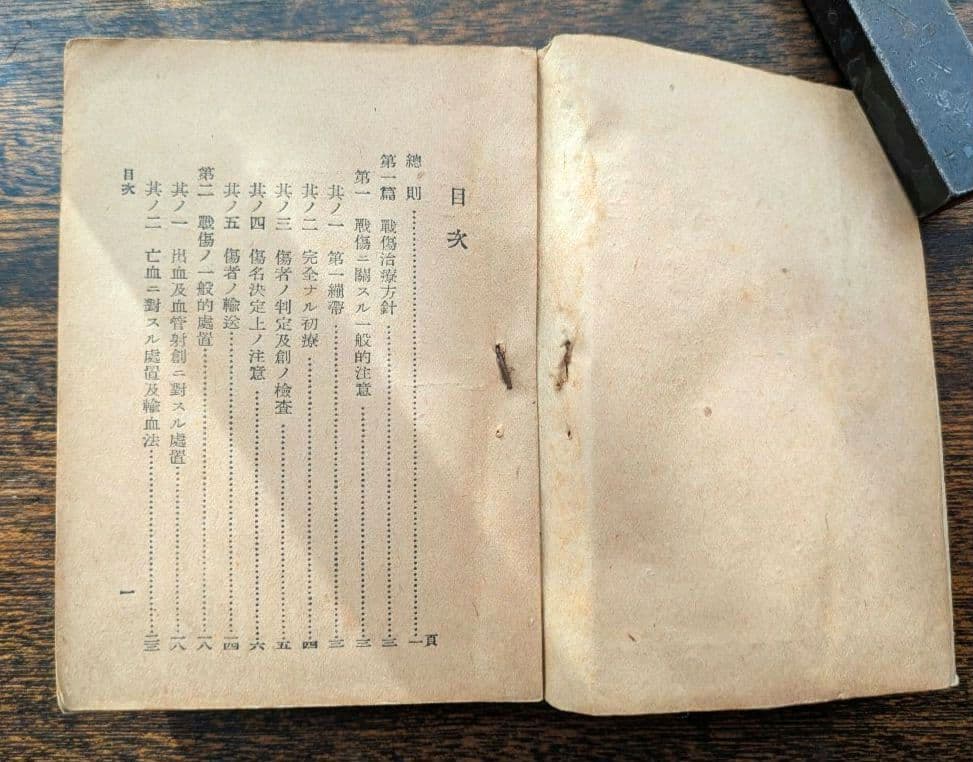 目次
頁
總則……一
第一篇 戰傷治療方針……三
第一 戰傷ニ關スル一般的注意……三
其ノ一 第一繃帶……三
其ノ二 完全ナル初療……四
其ノ三 傷者ノ判定及創ノ檢査……五
其ノ四 傷名決定上ノ注意……六
其ノ五 傷者ノ輸送……一四
第二 戰傷ノ一般的處置……一八
其ノ一 出血及血管射創ニ對スル處置……一八
其ノ二 亡血ニ對スル處置及輸血法……
目次
一